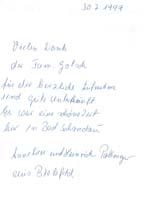 30.7.1999
Vielen Dank
der Fam. Golsch
für die herzliche Aufnahme
und gute Unterkunft
Es war eine schöne Zeit
hier in Bad Schandau
Annchen und Heinrich
aus Bielefeld